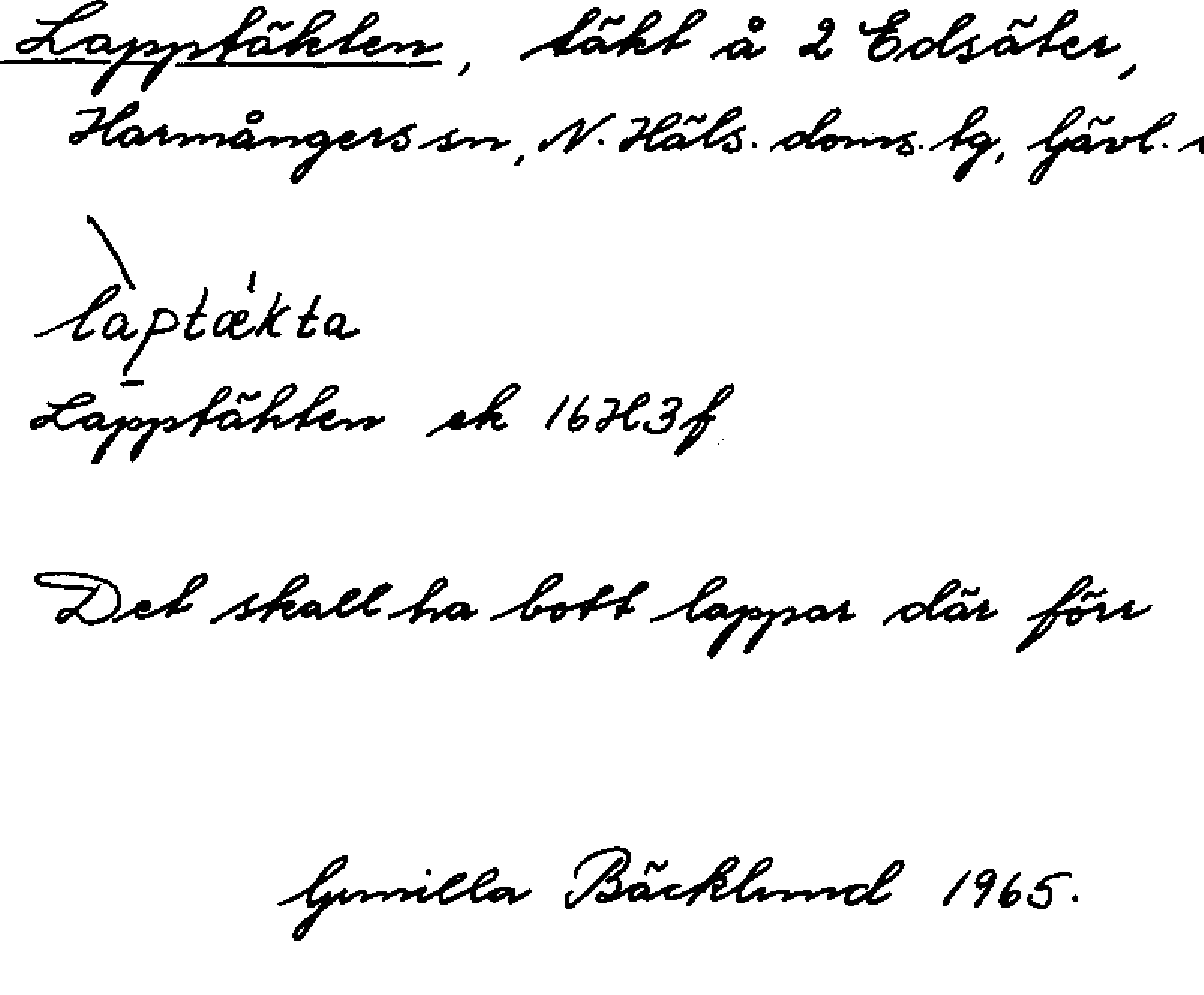 Lapptäkten, täkt å 2 Edsäter,
Harmångers sn, N. Häls. doms. lg, Gävl.
laptækta
Lapptäkten ek 16H3f
Det skall ha bott lappar där förr
Gunilla Bäcklund 1965.